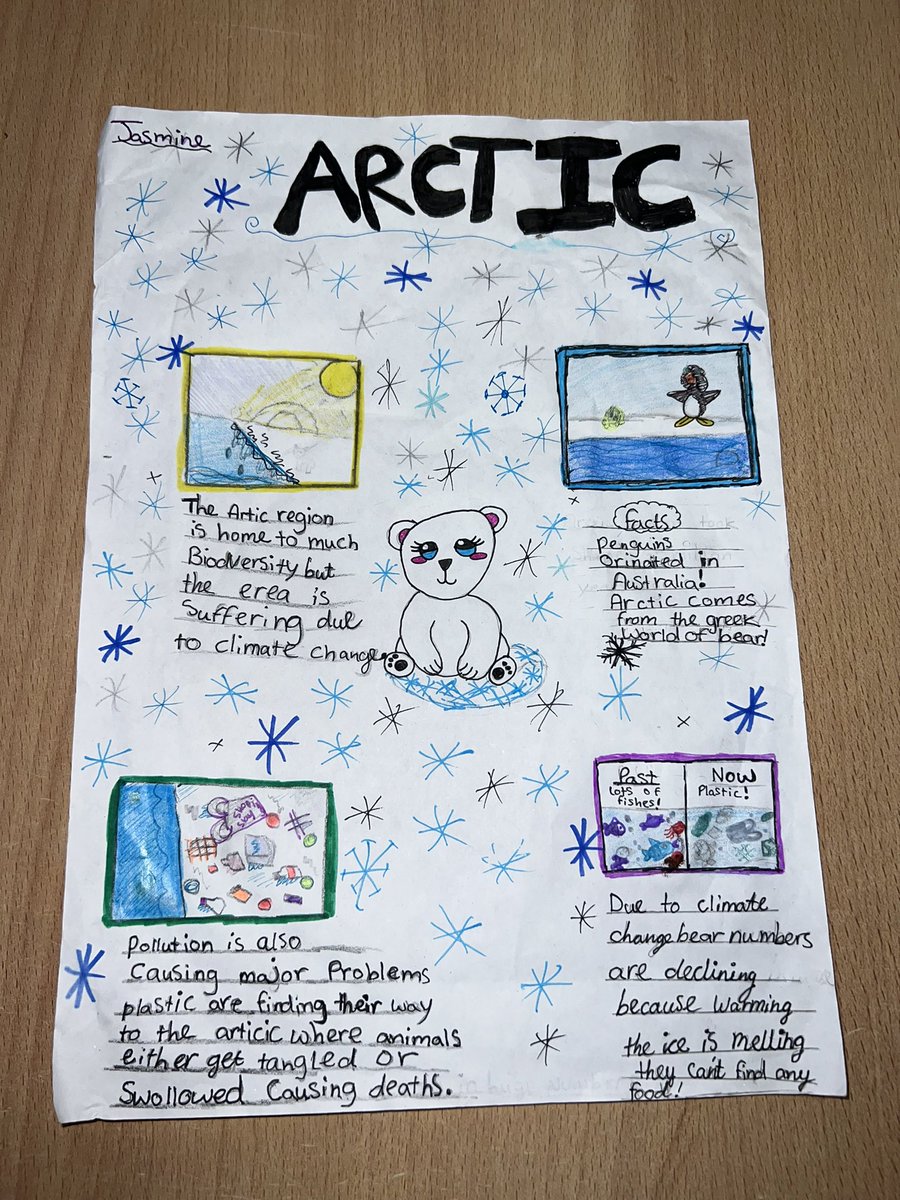 Jasmine
ARCTIC
The Artic region
is home to much
Biodversity but
the erea is
Suffering due
to climate change
facts
Penguins
orinated in
Australia!
Arctic comes
from the greek
World of bear!
Past
lots of
fishes!
Now
Plastic!
Pollution is also
Causing major Problems
plastic are finding their way
to the articic where animals
either get tangled or
Swollowed Causing deaths.
Due to climate
change bear numbers
are declining
because warming
the ice is melling
they can't find any
food!